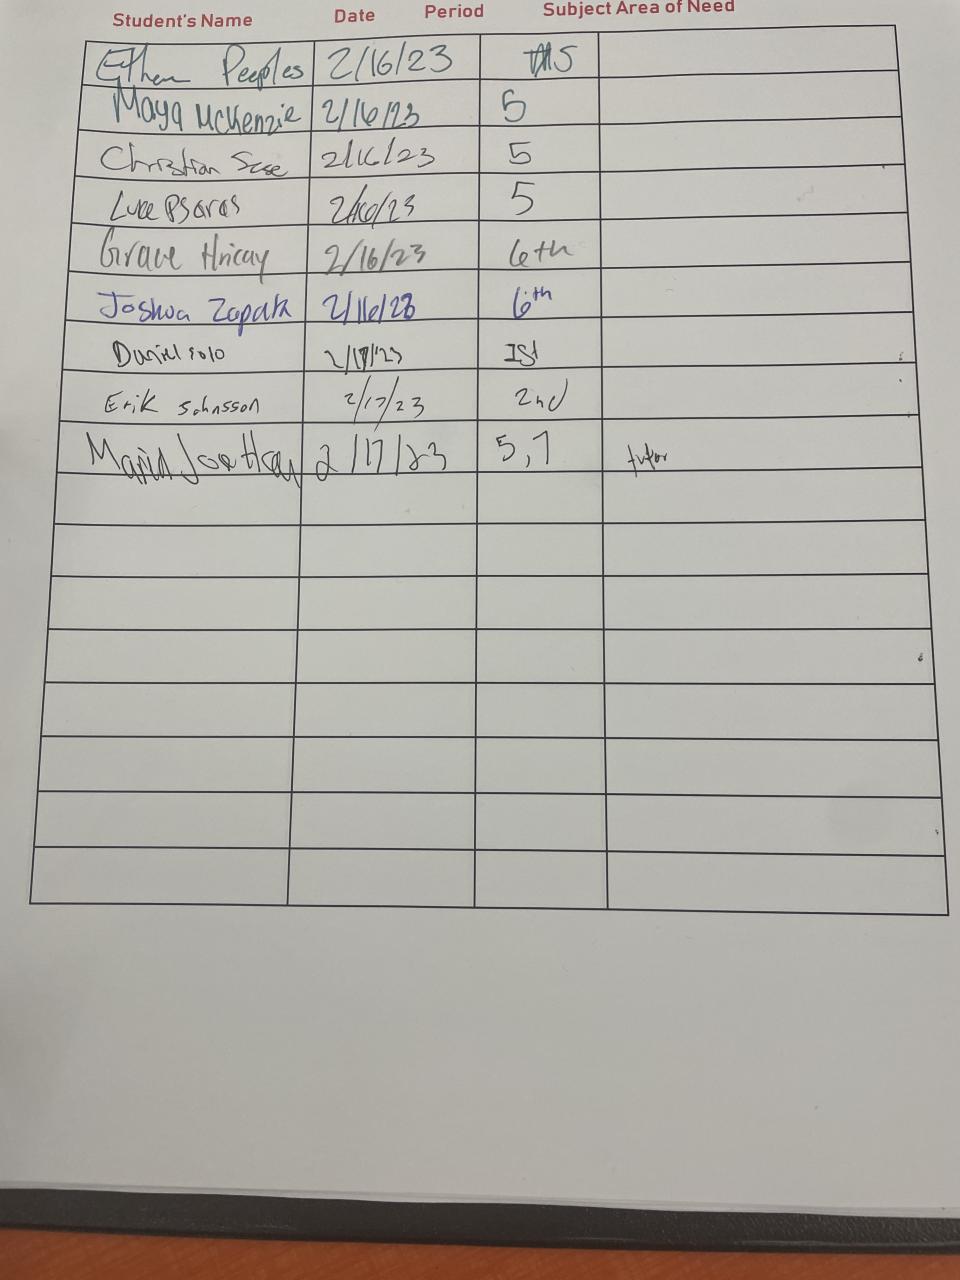 Student's Name Date Period Subject Area of Need
Ethan Peeples 2/16/23 5
Maya McKenzie 2/16/23 5
Christian 2/16/23 5
Luke Psaras 2/16/23 5
Grace Hricay 2/16/23 6th
Joshua Zapata 2/16/23 6th
Daniel Solo 2/17/23 1st
Erik Johnsson 2/17/23 2nd
Maria 2/17/23 5,7 tutor